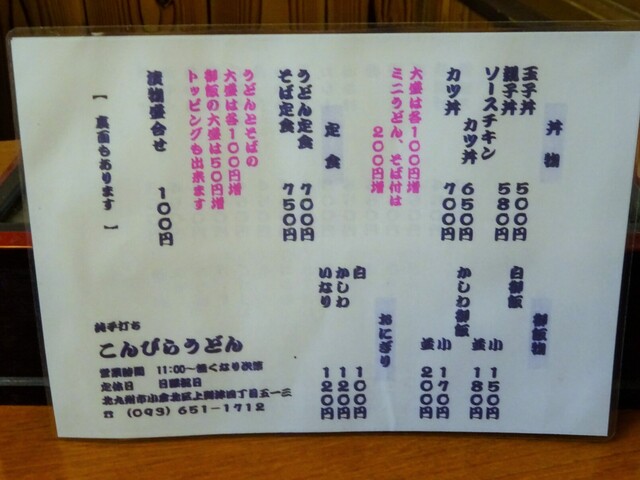 丼物
玉子丼 500円
親子丼 580円
ソースチキン
カツ丼 650円
カツ丼 700円
大盛は各100円増
ミニうどん、そば付は
200円増
定食
うどん定食 700円
そば定食 750円
うどんとそばの
大盛は各100円増
御飯の大盛は50円増
トッピングも出来ます
漬物盛合せ 100円
【 裏面もあります 】
御飯物
白御飯 小 150円
並 180円
かしわ御飯 小 170円
並 200円
おにぎり
白 100円
かしわ 120円
いなり 120円
純手打ち
こんぴらうどん
営業時間 11:00~無くなり次第
定休日 日曜祝日
北九州市小倉北区上到津四丁目五一三
☎ (093) 651-1712